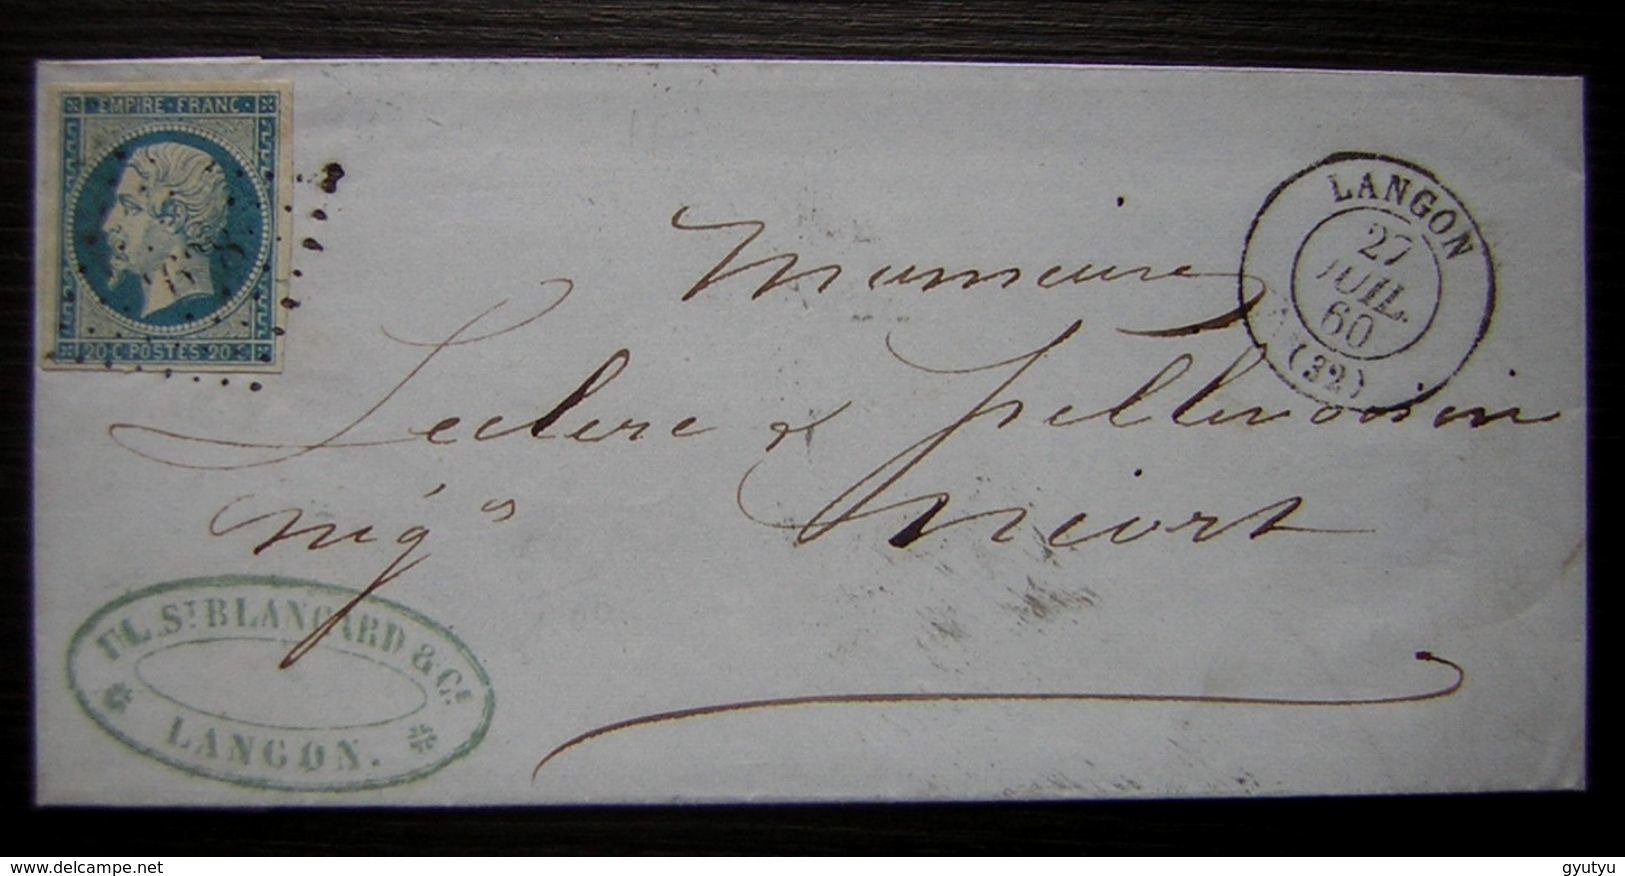 EMPIRE · FRANC ·
20 C POSTES 20
LANGON
27
JUIL.
60
(32)
Messieurs
Leclerc &
Niort
St BLANCARD & Cie
LANGON.
delcampe.net
gyutyu